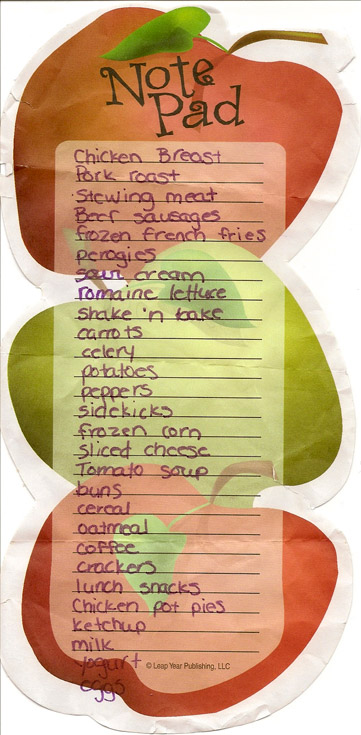 Note
Pad
Chicken Breast
Pork roast
Stewing meat
Beef sausages
frozen french fries
perogies
sour cream
romaine lettuce
shake 'n bake
carrots
celery
potatoes
peppers
sidekicks
frozen corn
sliced cheese
Tomato soup
buns
cereal
oatmeal
coffee
crackers
lunch snacks
Chicken pot pies
ketchup
milk
yogurt
© Leap Year Publishing, LLC
eggs